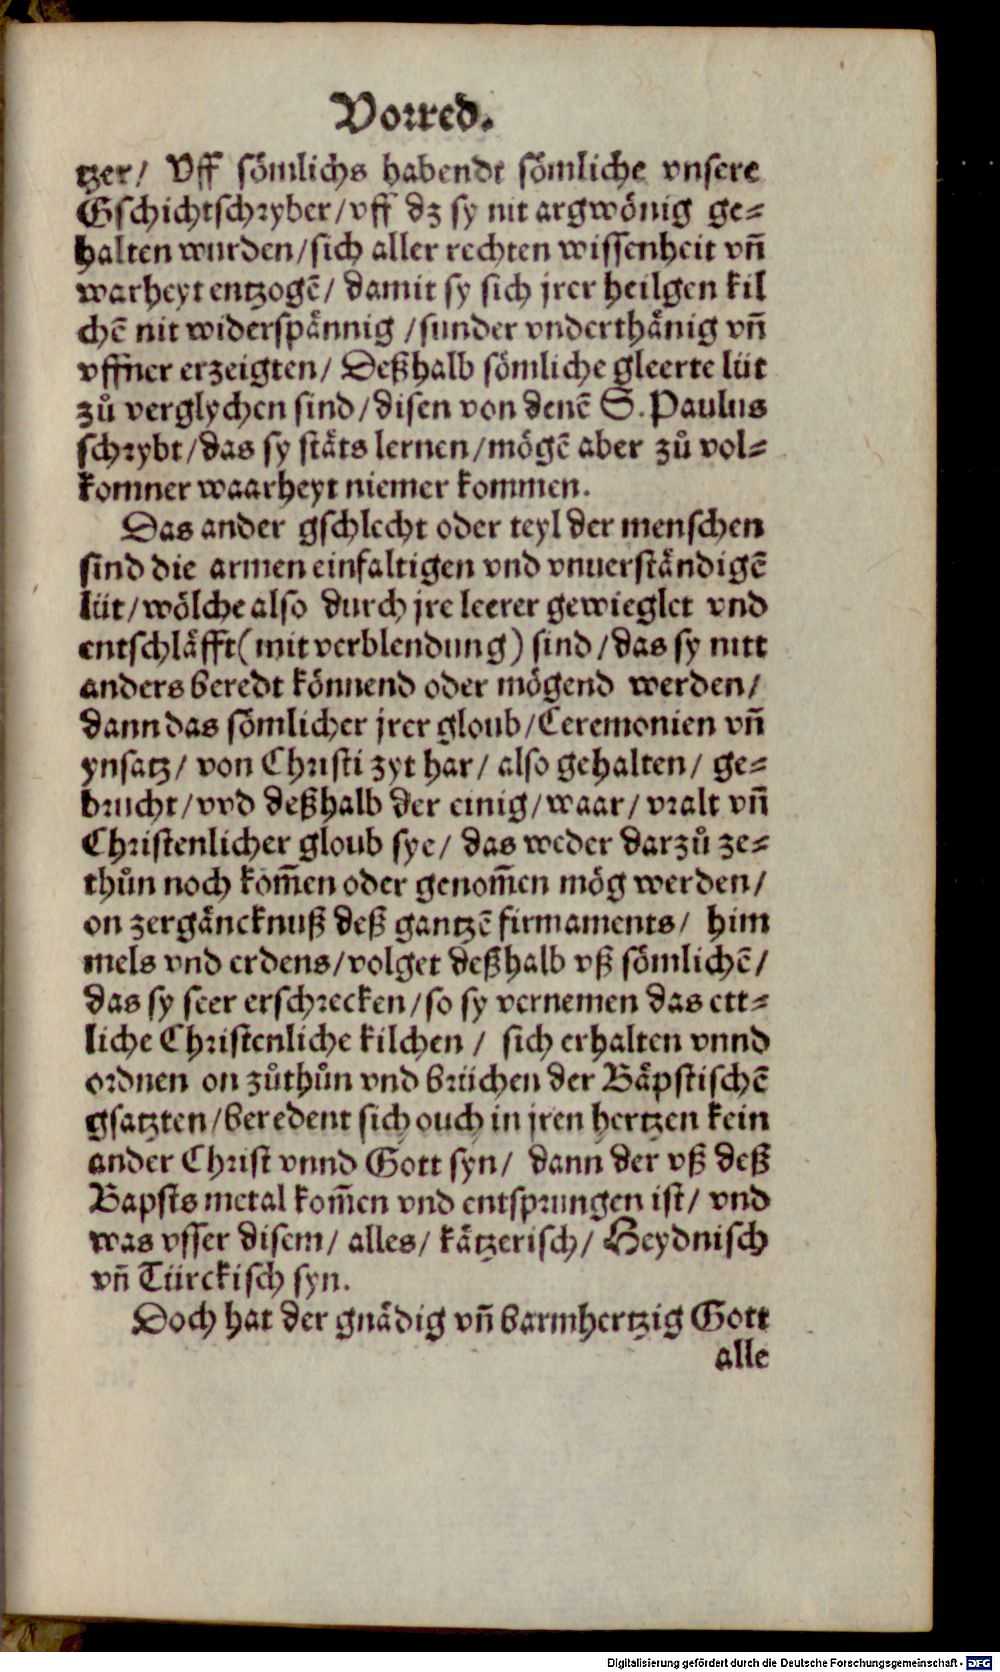 Vorred.
tzer/ Vff sömlichs habendt sömliche vnsere
Gschichtschryber/vff dz sy nit argwönig ge⸗
halten wurden/sich aller rechten wissenheit vn̄
warheyt entzogē/ damit sy sich jrer heilgen kil
chē nit widerspännig /sunder vnderthänig vn̄
vffner erzeigten/ Deßhalb sömliche gleerte lüt
zů verglychen sind/disen von denē S. Paulus
schrybt/das sy stäts lernen/mögē aber zů vol⸗
komner waarheyt niemer kommen.
Das ander gschlecht oder teyl der menschen
sind die armen einfaltigen vnd vnuerständigē
lüt/wölche also durch jre leerer gewieglet vnd
entschläfft(mit verblendung) sind/das sy nitt
anders beredt könnend oder mögend werden/
dann das sömlicher jrer gloub/Ceremonien vn̄
ynsatz/ von Christi zyt har/ also gehalten/ ge⸗
brucht/vvd deßhalb der einig/waar/vralt vn̄
Christenlicher gloub sye/ das weder darzů ze⸗
thůn noch kom̄en oder genom̄en mög werden/
on zergäncknuß deß gantzē firmaments/ him
mels vnd erdens/volget deßhalb vß sömlichē/
das sy seer erschrecken/so sy vernemen das ett⸗
liche Christenliche kilchen / sich erhalten vnnd
ordnen on zůthůn vnd brüchen der Bäpstischē
gsatzten/beredent sich ouch in jren hertzen kein
ander Christ vnnd Gott syn/ dann der vß deß
Bapsts metal kom̄en vnd entsprungen ist/ vnd
was vsser disem/ alles/ kätzerisch/ Heydnisch
vn̄ Türckisch syn.
Doch hat der gnädig vn̄ barmhertzig Gott
alle
Digitalisierung gefördert durch die Deutsche Forschungsgemeinschaft - DFG